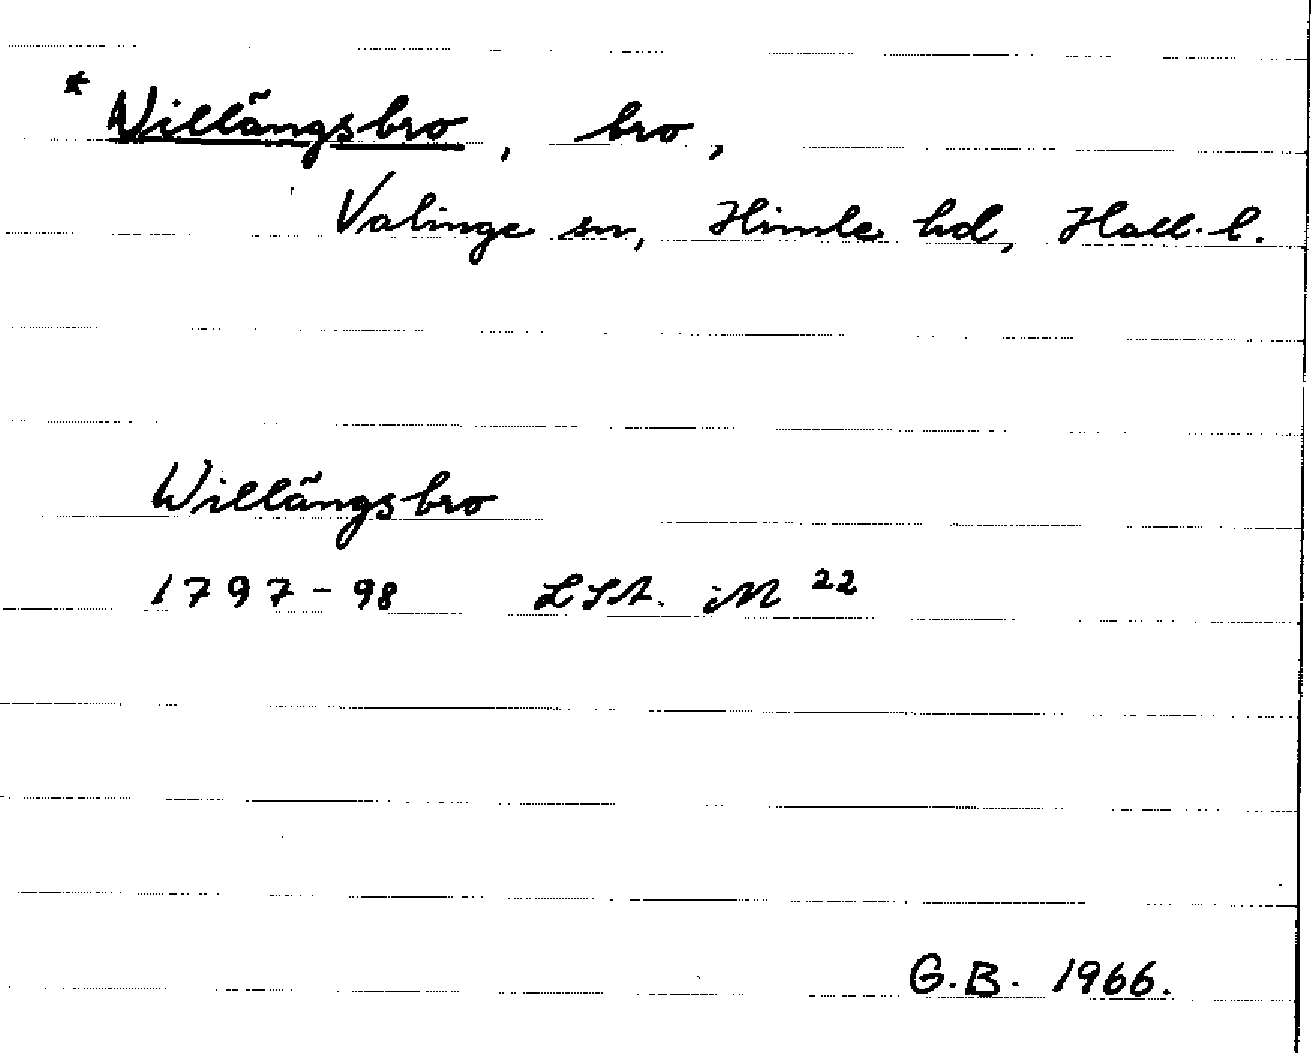 * Willängsbro, bro,
Valinge sn, Himle hd, Hall. l.
Willängsbro
1797-98 LSA. iM 22
G.B. 1966.